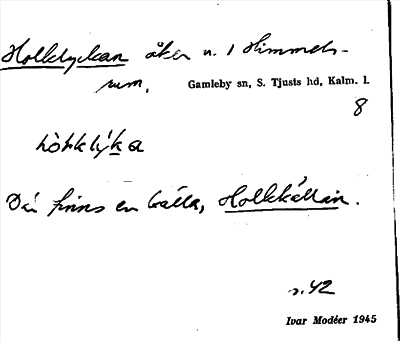 Holklyckan åker u. 1 Himmels-
rum, Gamleby sn, S. Tjusts hd, Kalm. l.
8
hòkklỳka
Där finns en källa, Holkkällan.
s. 42
Ivar Modéer 1945